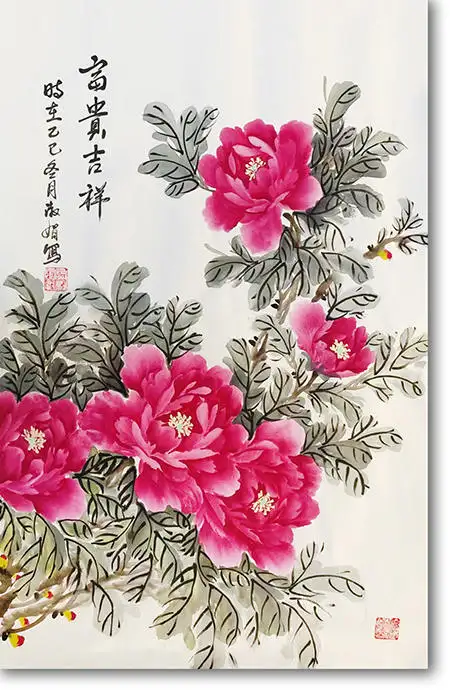 富貴吉祥
時在乙巳冬月敬娟寫